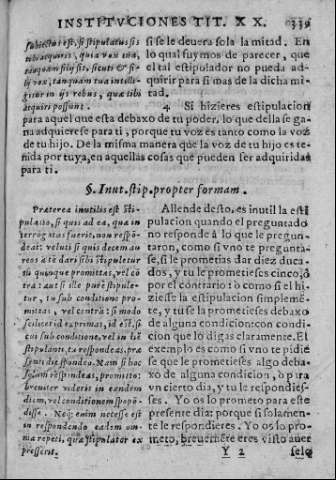 INSTITVCIONES TIT. XX. 339
subiectus est, si stipulatus sis
tibi acquiris, quia vox tua,
tanquam filij sit, sicuti & fi-
lij vox, tanquam tua intelle-
gitur in ijs rebus, quæ tibi
acquiri possunt.
si se le deuera sola la mitad. En
lo qual suymos de parecer, que
el tal estipulador no pueda ad
quirir para si mas de la dicha mi
tad.
4 Si hizieres estipulacion
para aquel que esta debaxo de tu poder, lo que della se ga
na adquierese para ti, porque tu voz es tanto como la voz
de tu hijo. De la misma manera que la voz de tu hijo es te
nida por tuya, en aquellas cosas que pueden ser adquiridas
para ti.
§. Inut. stip. propter formam.
Præterea inutilis est sti-
pulatio, si quis ad ea, quæ in
terrogatus fuerit, non respõ-
deat: veluti si quis decem au
reos à te dari sibi stipuletur
tu quinque promittas, vel cõ
tra: aut si ille purè stipule-
tur, tu sub conditione pro-
mittas, vel contrà: si modo
scilicet id exprimas, id est, si
cui sub conditione, vel in diẽ
stipulanti, tu respondeas, præ
senti die spondeo. Nam si hoc
solum respondeas, promitto:
breuiter videris in eandem
diem, vel conditionem spopõ-
disse. Neq; enim necesse est
in respondendo eadem om-
nia repeti, quæ stipulator ex
presserit.
Allende desto, es inutil la esti
pulacion quando el preguntado
no responde à lo que le pregun
taron, como si vno te pregunta-
se, si le prometias dar diez duca-
dos, y tu le prometieses cinco, ò
por el contrario: o como si el hi-
ziesse la estipulacion simplemẽ-
te, y tu se la prometieses debaxo
de alguna condicion: con condi-
cion que lo digas claramente. El
exemplo es como si vno te pidiẽ
se que le prometieses algo deba-
xo de alguna condicion, ò para
vn cierto dia, y tu le respondies-
ses. Yo os lo prometo para este
presente dia: porque si solamen-
te le respondieres. Yo os lo pro-
meto, breuemẽte eres visto auer
Y 2 selo